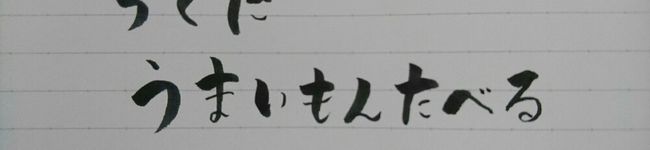 うまいもんたべる